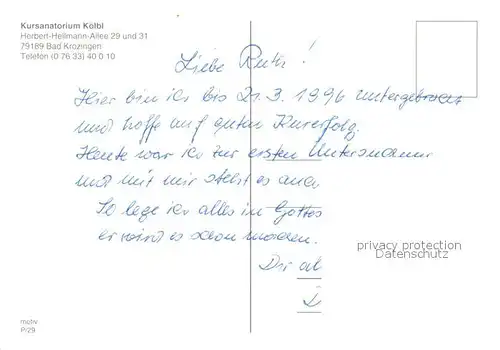 Kursanatorium Kölbl
Herbert-Hellmann-Allee 29 und 31
79189 Bad Krozingen
Telefon (0 76 33) 40 0 10
Liebe Ruth!
Hier bin ich bis 21.3.1996 untergebracht
und hoffe auf guten Kurerfolg.
Heute war ich zur ersten
und mit mir steht es
So lege ich alles in Gottes
er wird es schon machen.
Dir
privacy protection
Datenschutz
motiv
P/29